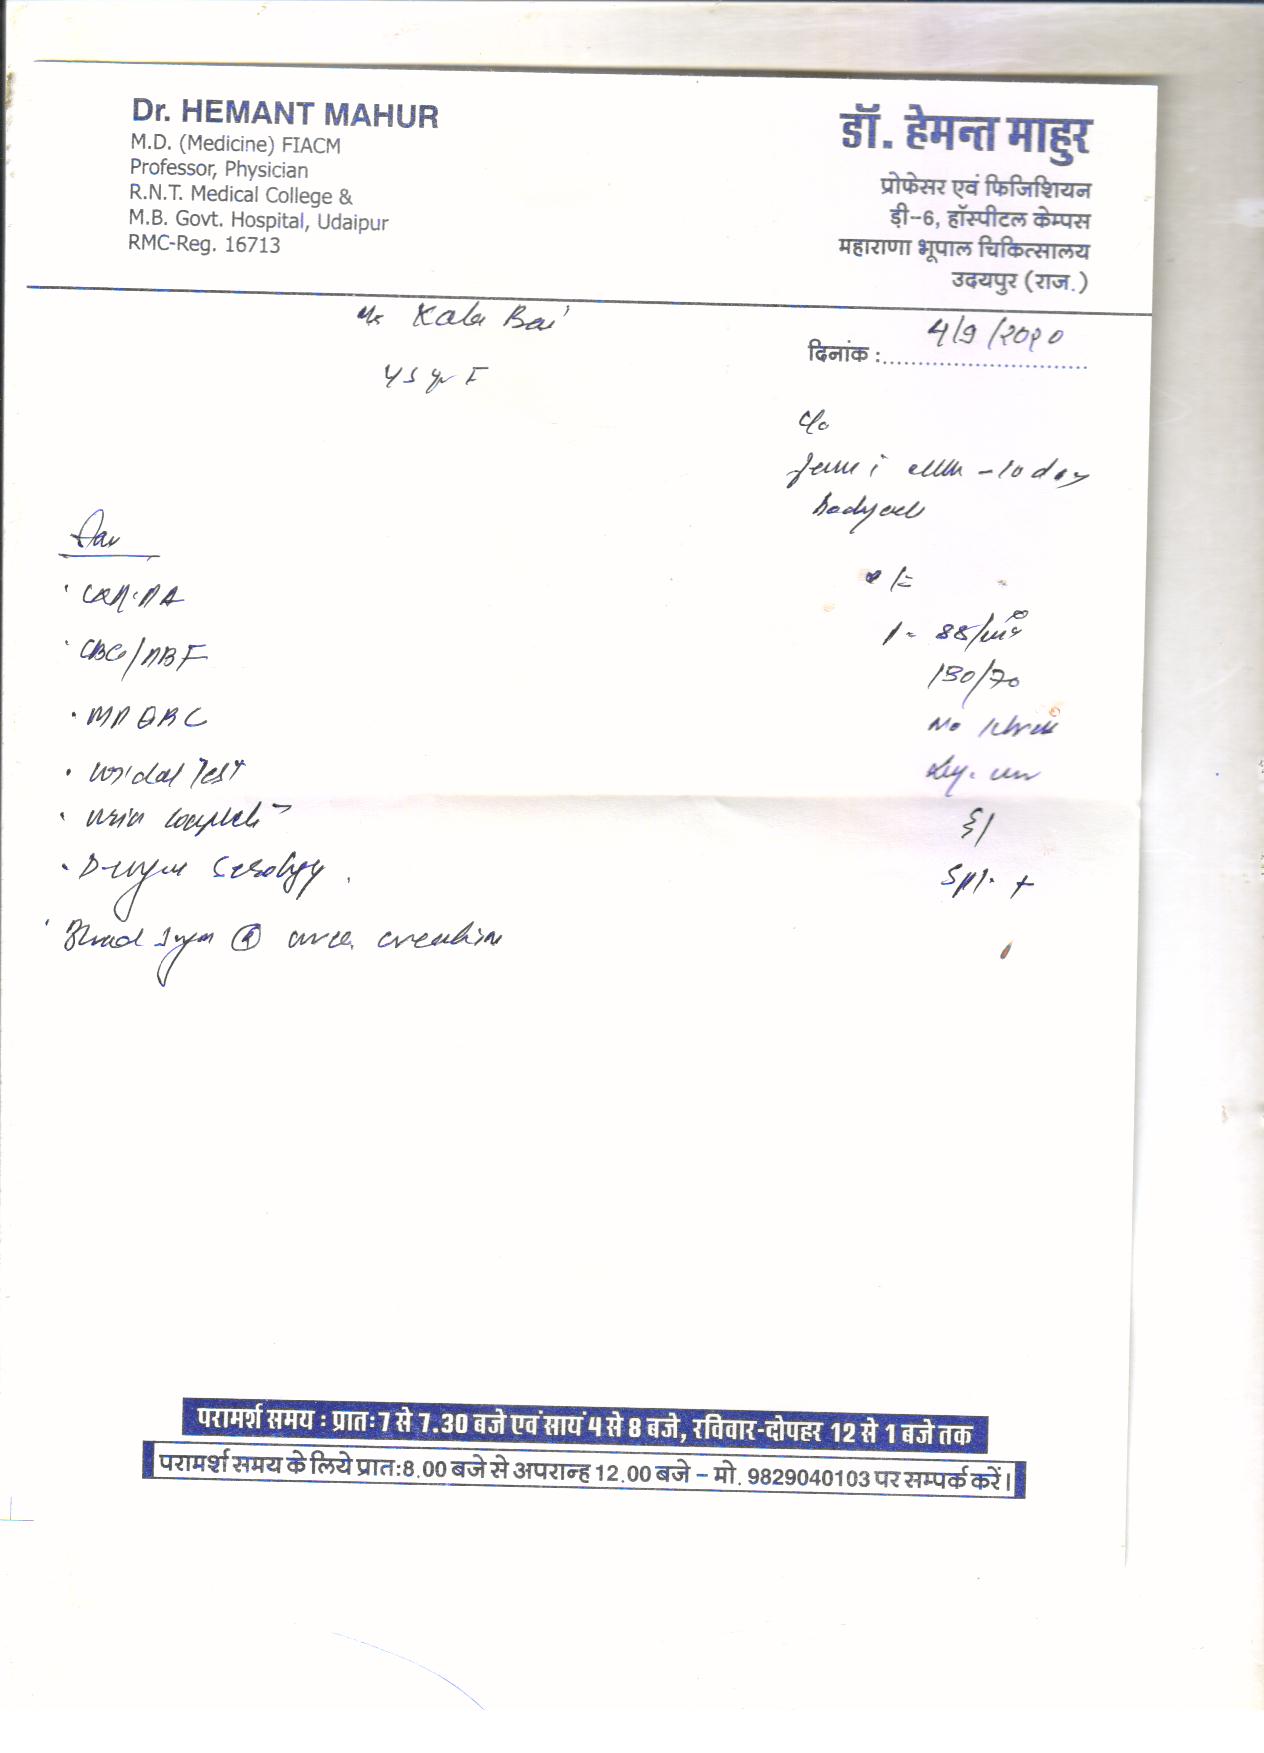 Dr. HEMANT MAHUR
M.D. (Medicine) FIACM
Professor, Physician
R.N.T. Medical College &
M.B. Govt. Hospital, Udaipur
RMC-Reg. 16713
डॉ. हेमन्त माहुर
प्रोफेसर एवं फिजिशियन
ड़ी-6, हॉस्पीटल केम्पस
महाराणा भूपाल चिकित्सालय
उदयपुर (राज.)
Kala Bai
दिनांक : 4/9/2020
45 yr F
c/o
- 10 day
bodyache
CBC/PBF
88/min
130/70
MP QBC
No
Widal Test
Urine Complete
S/
Dengue Serology
Spl. +
Blood Sugar (R) urea creatinine
परामर्श समय : प्रातः 7 से 7.30 बजे एवं सायं 4 से 8 बजे, रविवार-दोपहर 12 से 1 बजे तक
परामर्श समय के लिये प्रातः 8.00 बजे से अपरान्ह 12.00 बजे – मो. 9829040103 पर सम्पर्क करें।